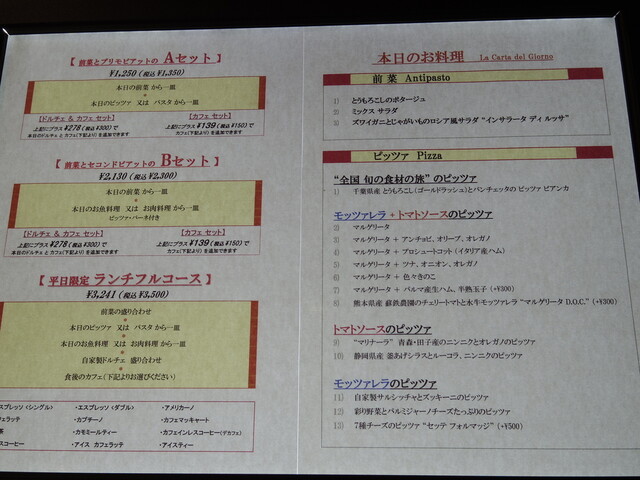 【 前菜とプリモピアットの Aセット 】
¥1,250 (税込 ¥1,350)
本日の前菜 から一皿
+
本日のピッツァ 又は パスタ から一皿
【ドルチェ & カフェ セット】
上記にプラス ¥278 (税込 ¥300) で
本日のドルチェ と カフェ(下記より) を追加できます
【カフェ セット】
上記にプラス ¥139 (税込 ¥150) で
カフェ(下記より) を追加できます
【 前菜とセコンドピアットの Bセット 】
¥2,130 (税込 ¥2,300)
本日の前菜 から一皿
+
本日のお魚料理 又は お肉料理 から一皿
ピッツァ・パーネ付き
【ドルチェ & カフェ セット】
上記にプラス ¥278 (税込 ¥300) で
本日のドルチェ と カフェ(下記より) を追加できます
【カフェ セット】
上記にプラス ¥139 (税込 ¥150) で
カフェ(下記より) を追加できます
【 平日限定 ランチフルコース 】
¥3,241 (税込 ¥3,500)
前菜の盛り合わせ
本日のピッツァ 又は パスタ から一皿
本日のお魚料理 又は お肉料理 から一皿
自家製ドルチェ 盛り合わせ
食後のカフェ(下記よりお選びください)
スプレッソ <シングル> ・エスプレッソ <ダブル> ・アメリカーノ
フェラッテ ・カプチーノ ・カフェマッキャート
茶 ・カモミールティー ・カフェインレスコーヒー(デカフェ)
スコーヒー ・アイス カフェラッテ ・アイスティー
本日のお料理 La Carta del Giorno
前 菜 Antipasto
1) とうもろこしのポタージュ
2) ミックス サラダ
3) ズワイガニとじゃがいものロシア風サラダ “インサラータ ディ ルッサ”
ピッツァ Pizza
“全国 旬の食材の旅” のピッツァ
1) 千葉県産 とうもろこし(ゴールドラッシュ)とパンチェッタの ピッツァ ビアンカ
モッツァレラ + トマトソースのピッツァ
2) マルゲリータ
3) マルゲリータ + アンチョビ、オリーブ、オレガノ
4) マルゲリータ + プロシュートコット (イタリア産ハム)
5) マルゲリータ + ツナ、オニオン、オレガノ
6) マルゲリータ + 色々きのこ
7) マルゲリータ + パルマ産生ハム、半熟玉子 (+¥300)
8) 熊本県産 蘇鉄農園のチェリートマトと水牛モッツァレラ “マルゲリータ D.O.C.” (+¥300)
トマトソースのピッツァ
9) “マリナーラ” 青森・田子産のニンニクとオレガノのピッツァ
10) 静岡県産 釜あげシラスとルーコラ、ニンニクのピッツァ
モッツァレラのピッツァ
11) 自家製サルシッチャとズッキーニのピッツァ
12) 彩り野菜とパルミジャーノチーズたっぷりのピッツァ
13) 7種チーズのピッツァ “セッテ フォルマッジ” (+¥500)